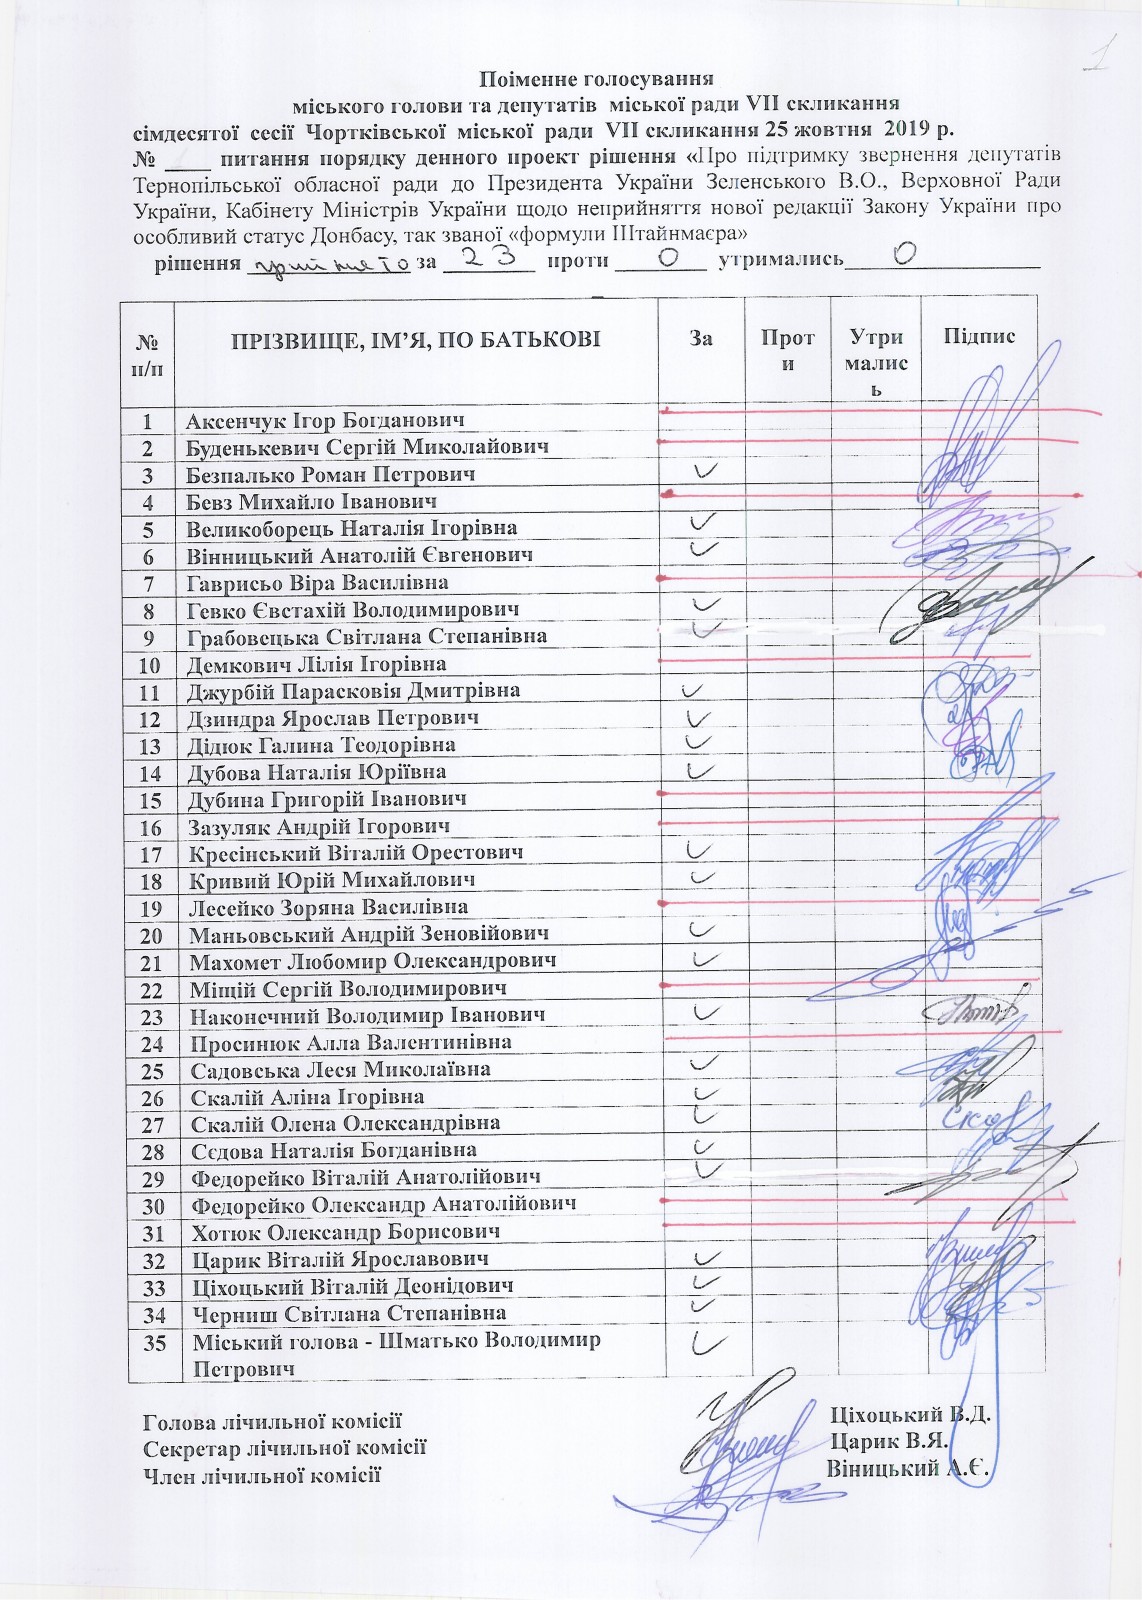 1
Поіменне голосування
міського голови та депутатів міської ради VII скликання
сімдесятої сесії Чортківської міської ради VII скликання 25 жовтня 2019 р.
№ ____ питання порядку денного проект рішення «Про підтримку звернення депутатів
Тернопільської обласної ради до Президента України Зеленського В.О., Верховної Ради
України, Кабінету Міністрів України щодо неприйняття нової редакції Закону України про
особливий статус Донбасу, так званої «формули Штайнмаєра»
рішення прийнято за 23 проти 0 утримались 0
№ п/п ПРІЗВИЩЕ, ІМ’Я, ПО БАТЬКОВІ За Проти Утрималиcь Підпис
1 Аксенчук Ігор Богданович
2 Буденькевич Сергій Миколайович
3 Безпалько Роман Петрович
4 Бевз Михайло Іванович
5 Великоборець Наталія Ігорівна
6 Вінницький Анатолій Євгенович
7 Гаврисьо Віра Василівна
8 Гевко Євстахій Володимирович
9 Грабовецька Світлана Степанівна
10 Демкович Лілія Ігорівна
11 Джурбій Парасковія Дмитрівна
12 Дзиндра Ярослав Петрович
13 Дідюк Галина Теодорівна
14 Дубова Наталія Юріївна
15 Дубина Григорій Іванович
16 Зазуляк Андрій Ігорович
17 Кресінський Віталій Орестович
18 Кривий Юрій Михайлович
19 Лесейко Зоряна Василівна
20 Маньовський Андрій Зеновійович
21 Махомет Любомир Олександрович
22 Міщій Сергій Володимирович
23 Наконечний Володимир Іванович
24 Просинюк Алла Валентинівна
25 Садовська Леся Миколаївна
26 Скалій Аліна Ігорівна
27 Скалій Олена Олександрівна
28 Сєдова Наталія Богданівна
29 Федорейко Віталій Анатолійович
30 Федорейко Олександр Анатолійович
31 Хотюк Олександр Борисович
32 Царик Віталій Ярославович
33 Ціхоцький Віталій Деонідович
34 Черниш Світлана Степанівна
35 Міський голова - Шматько Володимир
Петрович
Голова лічильної комісії Ціхоцький В.Д.
Секретар лічильної комісії Царик В.Я.
Член лічильної комісії Віницький А.Є.